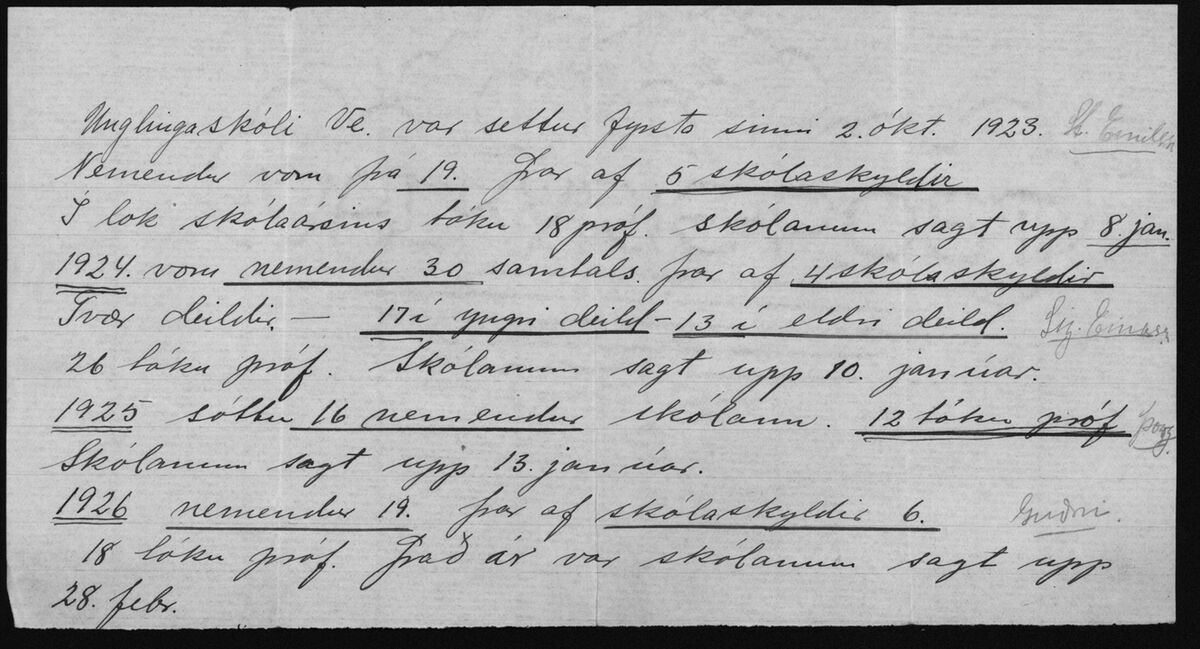 Unglingaskóli Ve. var settur fyrsta sinni 2. ókt. 1923. St. Emilsn
Nemendur voru þá 19. Þar af 5 skólaskyldir
Í lok skólaársins tóku 18 próf. Skólanum sagt upp 8. jan.
1924. voru nemendur 30 samtals. Þar af 4 skólaskyldir
Tvær deildir. — 17 í yngri deild – 13 í eldri deild. Einars
26 tóku próf. Skólanum sagt upp 10. janúar.
1925 sóttu 16 nemendur skólann. 12 tóku próf
Skólanum sagt upp 13. janúar.
1926 nemendur 19. Þar af skólaskyldir 6.
18 tóku próf. Það ár var skólanum sagt upp
28. febr.